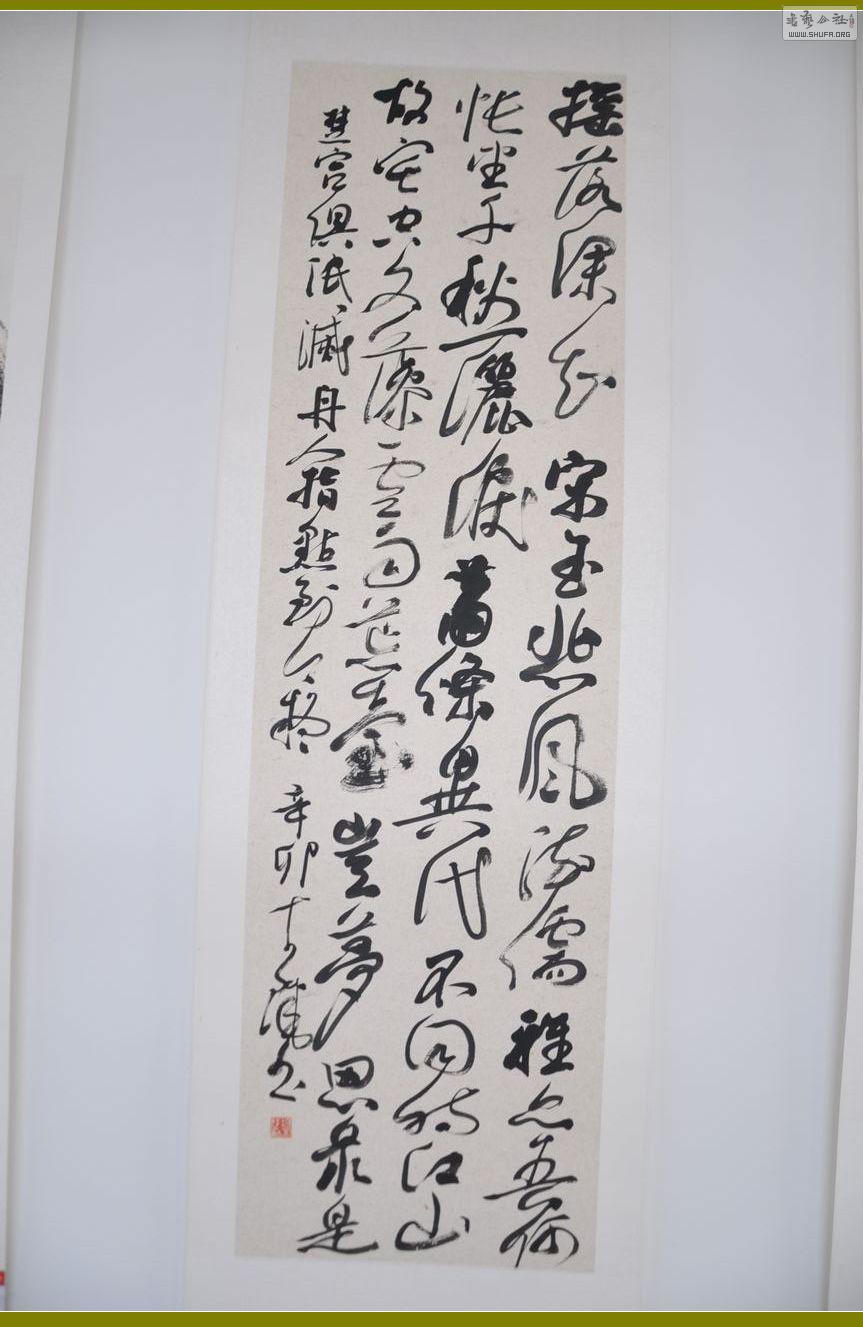 搖落深知宋玉悲風流儒雅亦吾師
悵望千秋一灑淚蕭條異代不同時江山
故宅空文藻雲雨荒臺豈夢思最是
楚宮俱泯滅舟人指點到今疑 辛卯十月書
书艺公社
WWW.SHUFA.ORG